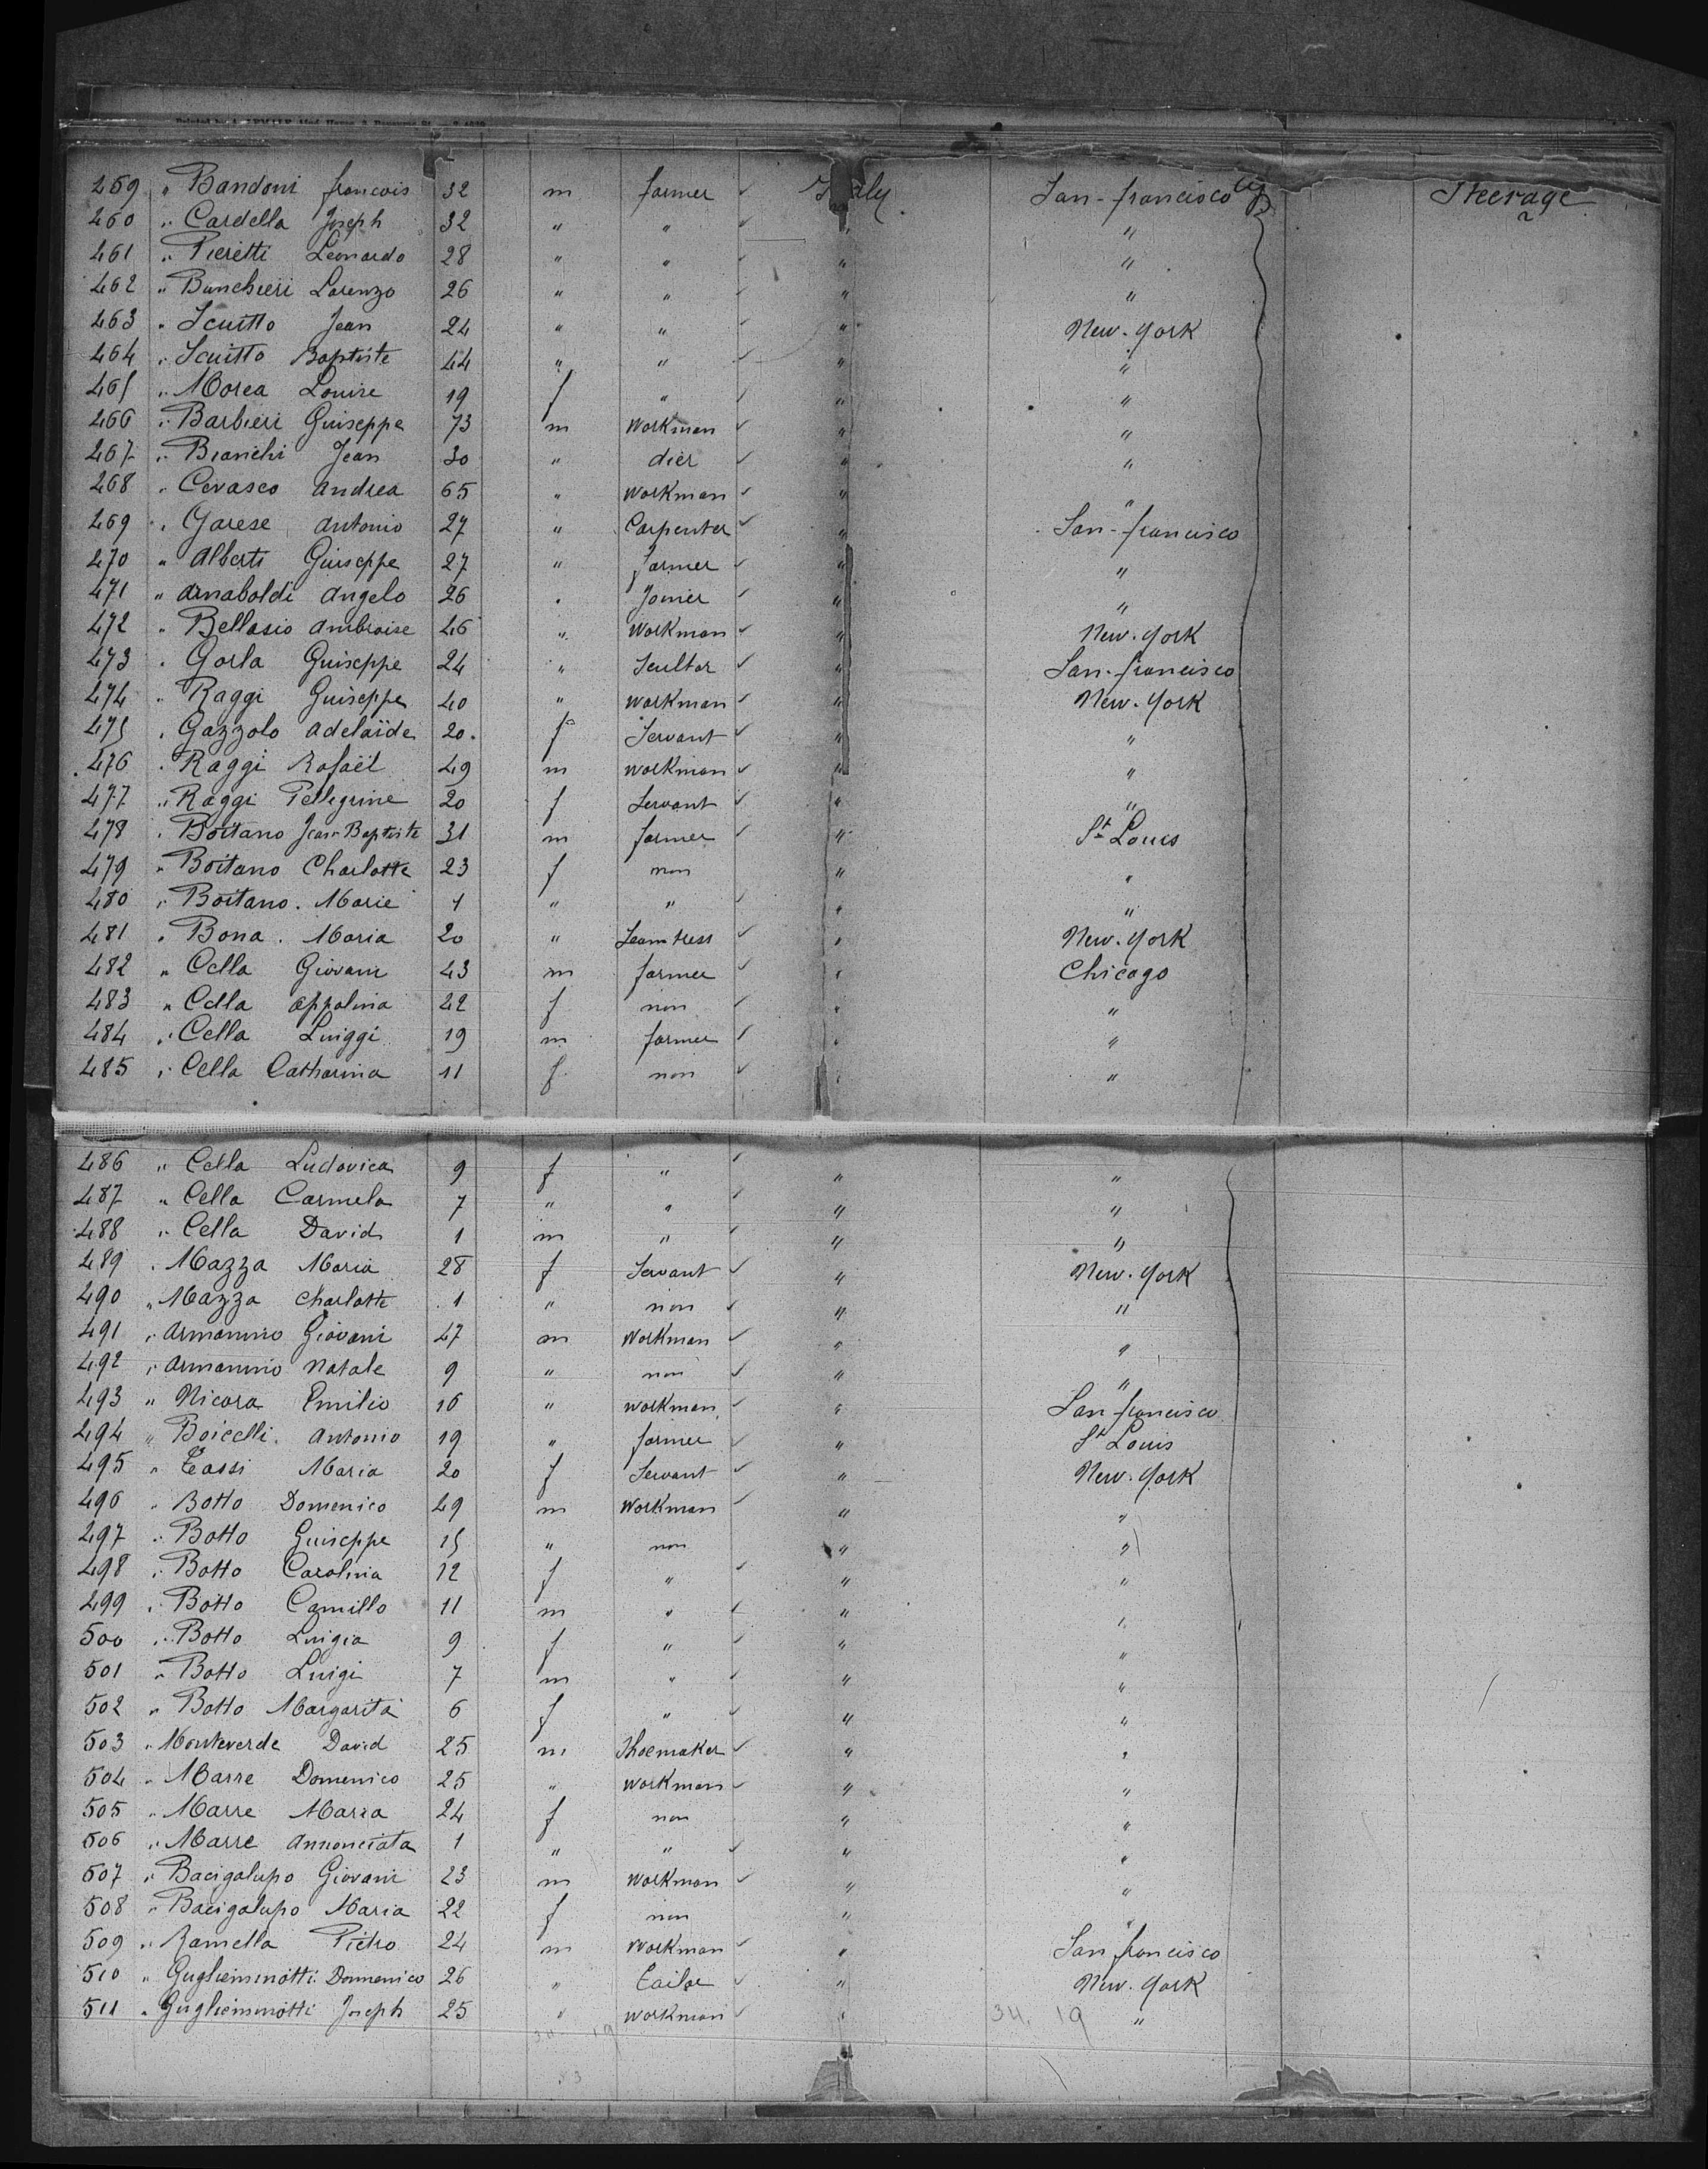 259 " Bandoni francois 32 m farmer ✓ Italy San-francisco Steerage
260 " Cardella Joseph 32 " " ✓ " "
261 " Pieretti Leonardo 28 " " ✓ " "
262 " Banchieri Lorenzo 26 " " ✓ " "
463 " Scutto Jean 24 " " ✓ " New-York
464 " Scutto Baptiste 44 " " ✓ " "
465 " Morea Louise 19 f " ✓ " "
266 " Barbieri Guiseppe 73 m Workman ✓ " "
267 " Bianchi Jean 30 " dier ✓ " "
268 " Cevasco Andrea 65 " workman ✓ " "
269 " Garese Antonio 27 " Carpenter ✓ " San-francisco
270 " Alberti Guiseppe 27 " farmer ✓ " "
471 " Arnaboldi Angelo 26 " Joiner ✓ " "
472 " Bellasio Ambroise 46 " Workman ✓ " New-York
473 " Gorla Guiseppe 24 " Scultor ✓ " San-francisco
474 " Raggi Guiseppe 40 " workman ✓ " New-York
475 " Gazzolo Adelaïde 20 f Servant ✓ " "
476 " Raggi Rafaël 49 m workman ✓ " "
477 " Raggi Pellegrine 20 f Servant ✓ " "
478 " Boitano Jean-Baptiste 31 m farmer ✓ " St Louis
479 " Boitano Charlotte 23 f non " "
480 " Boitano. Marie 1 " " ✓ " "
481 " Bona. Maria 20 " Seamtress ✓ " New-York
482 " Cella Giovani 43 m farmer ✓ " Chicago
483 " Cella Appolina 42 f non ✓ " "
484 " Cella Luiggi 19 m farmer ✓ " "
485 " Cella Catharina 11 f non ✓ " "
486 " Cella Ludovica 9 f " ✓ " "
487 " Cella Carmela 7 " " ✓ " "
488 " Cella David 1 m " ✓ " "
489 " Mazza Maria 28 f Servant ✓ " New-York
490 " Mazza Charlotte 1 " non ✓ " "
491 " Armannio Giovani 47 m Workman ✓ " "
492 " Armannio Natale 9 " non ✓ " "
493 " Nicora Emilio 16 " workman ✓ " San francisco
494 " Boicelli. Antonio 19 " farmer ✓ " St Louis
495 " Tassi Maria 20 f Servant ✓ " New-York
496 " Botto Domenico 49 m Workman ✓ " "
297 " Botto Guiseppe 15 " non " "
498 " Botto Carolina 12 f " ✓ " "
499 " Botto Camillo 11 m " ✓ " "
500 " Botto Luigia 9 f " ✓ " "
501 " Botto Luigi 7 m " ✓ " "
502 " Botto Margarita 6 f " ✓ " "
503 " Monteverde David 25 m Shoemaker ✓ " "
504 " Marre Domenico 25 " workman ✓ " "
505 " Marre Maria 24 f non " "
506 " Marre Annonciata 1 " " ✓ " "
507 " Bacigalupo Giovani 23 m Workman ✓ " "
508 " Bacigalupo Maria 22 f non " "
509 " Ramella Pietro 24 m Workman ✓ " San francisco
510 " Guglieminotti. Domenico 26 " Tailor ✓ " New-York
511 " Guglieminotti Joseph 25 " workman ✓ " "
34. 19